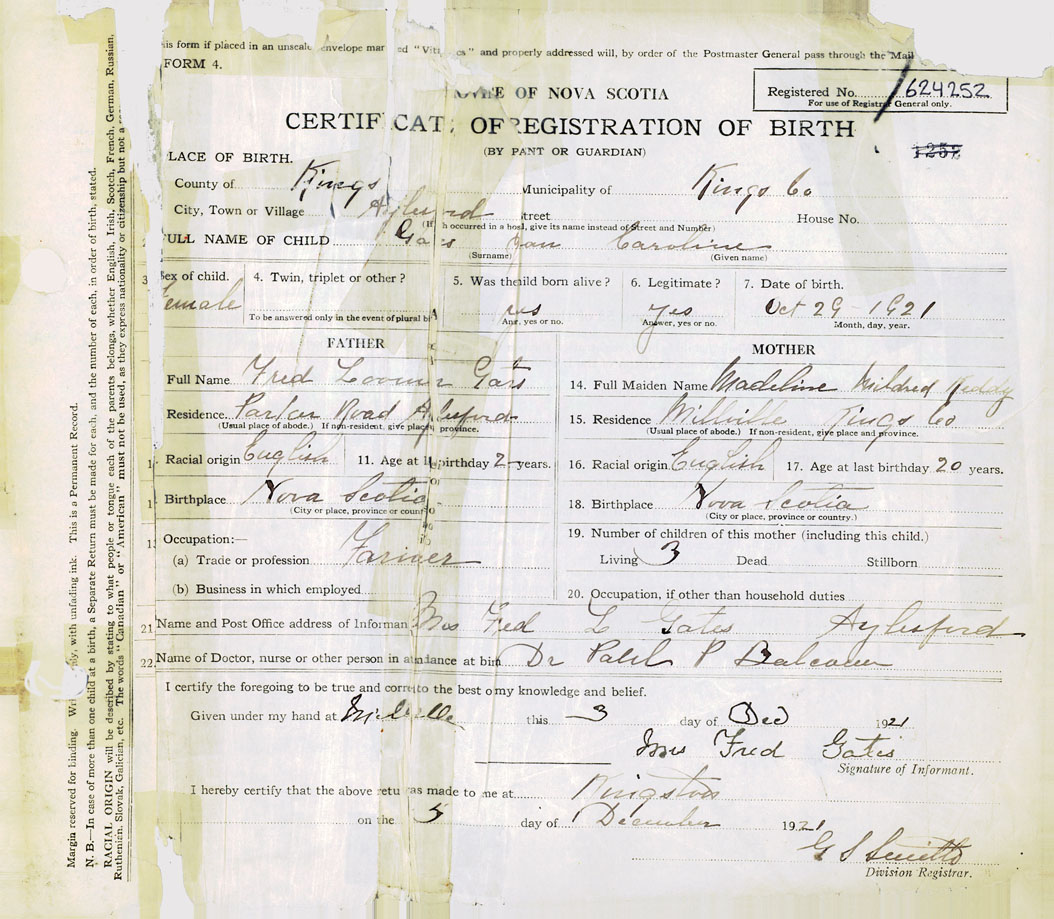 is form if placed in an unseale envelope mar ed "Vit cs" and properly addressed will, by order of the Postmaster General pass through the Mail
FORM 4.
OVINCE OF NOVA SCOTIA
Registered No. 624252
For use of Registrar General only.
CERTIFICATE OF REGISTRATION OF BIRTH
(BY PA NT OR GUARDIAN)
1257
LACE OF BIRTH.
County of Kings Municipality of Kings Co
City, Town or Village Aylesford Street House No.
(If h occurred in a hos l, give its name instead of Street and Number)
ULL NAME OF CHILD Joan Caroline
(Surname) (Given name)
3 Sex of child. Female
4. Twin, triplet or other?
To be answered only in the event of plural bi
5. Was the ild born alive? yes
Ans. yes or no.
6. Legitimate? yes
Answer, yes or no.
7. Date of birth. Oct 29 - 1921
Month, day, year.
FATHER
Full Name Fred Loomer Gates
Residence. Parker Road Aylesford
(Usual place of abode.) If non-resident, give place province.
Racial origin English 11. Age at l birthday 2 years.
Birthplace Nova Scotia
(City or place, province or count
Occupation:—
(a) Trade or profession Farmer
(b) Business in which employed
MOTHER
14. Full Maiden Name Madeline Mildred Keddy
15. Residence Millville Kings Co
(Usual place of abode.) If non-resident, give place and province.
16. Racial origin English 17. Age at last birthday 20 years.
18. Birthplace Nova Scotia
(City or place, province or country.)
19. Number of children of this mother (including this child.)
Living 3 Dead Stillborn
20. Occupation, if other than household duties
21 Name and Post Office address of Informan Mrs Fred L Gates Aylesford
22. Name of Doctor, nurse or other person in attendance at birth Dr P Balcom
I certify the foregoing to be true and correct to the best o my knowledge and belief.
Given under my hand at Millville this 3 day of Dec 1921
Mrs Fred Gates
Signature of Informant.
I hereby certify that the above return was made to me at Kingston
on the 5 day of December 1921
G S Smith
Division Registrar.
Margin reserved for binding. Wri nly, with unfading ink. This is a Permanent Record.
N. B.—In case of more than one child at a birth, a Separate Return must be made for each, and the number of each, in order of birth, stated.
RACIAL ORIGIN will be described by stating to what people or tongue each of the parents belongs, whether English, Irish, Scotch, French, German, Russian,
Ruthenian, Slovak, Galician, etc. The words "Canadian" or "American" must not be used, as they express nationality or citizenship but not a